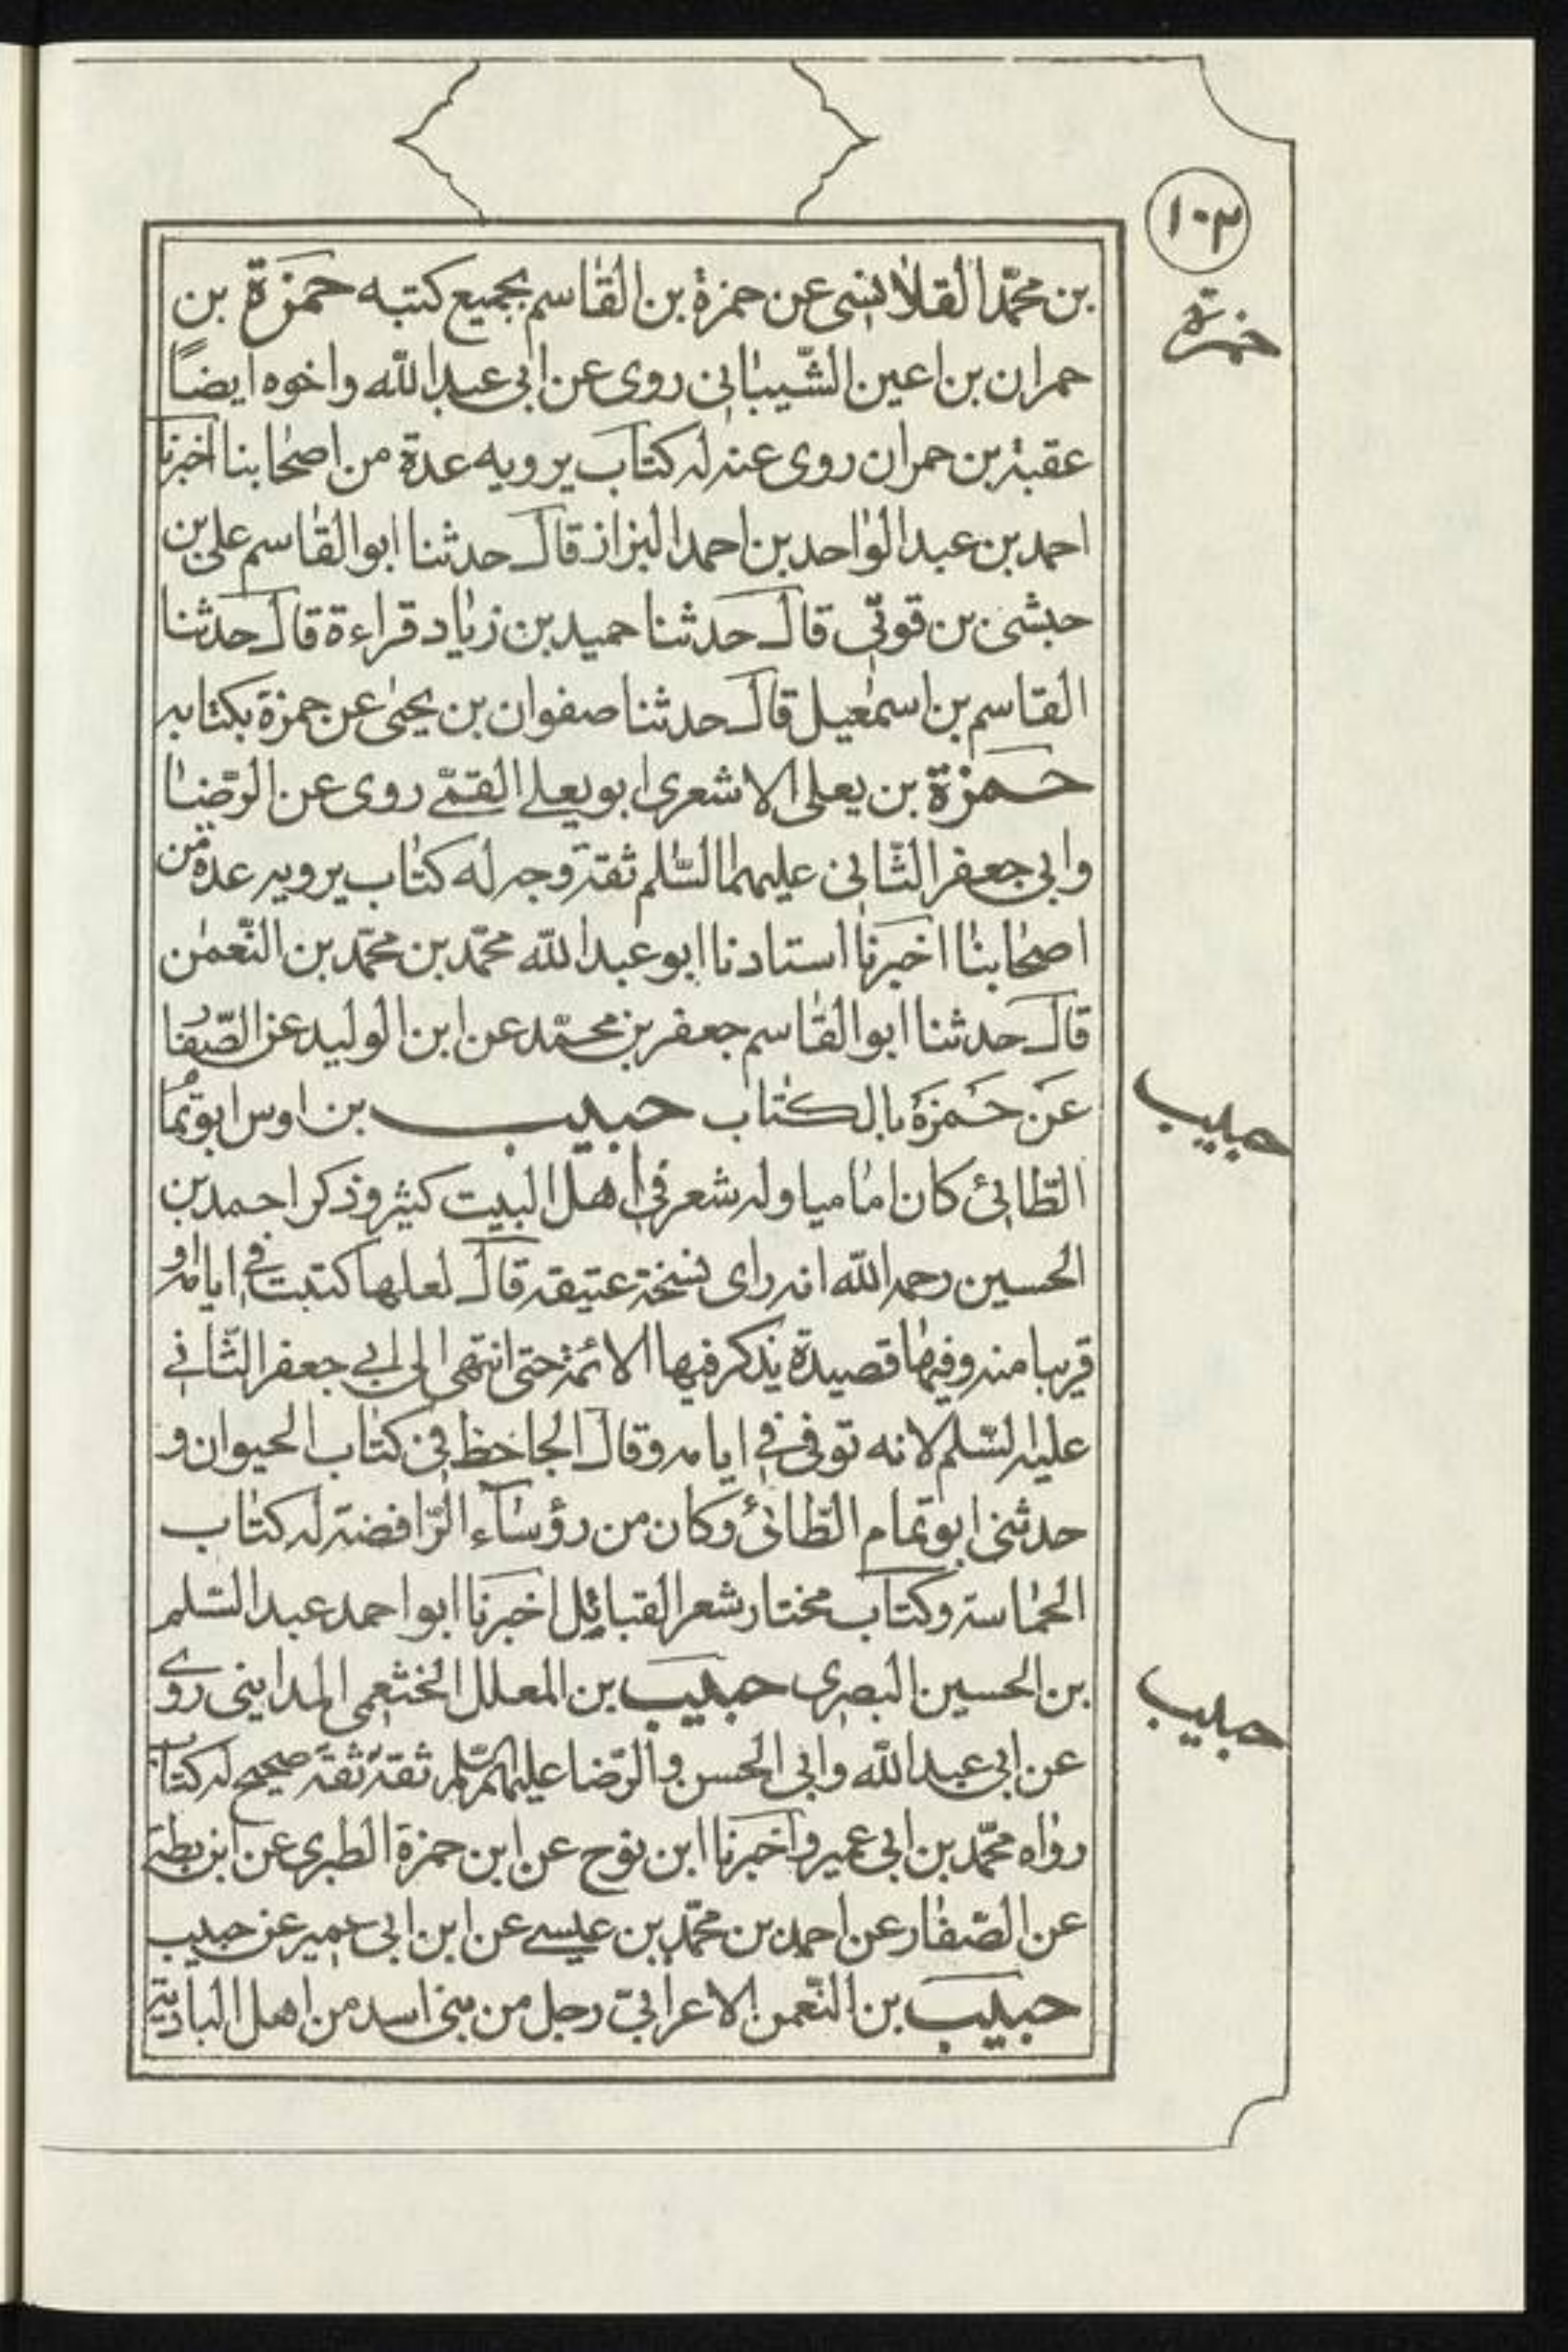 ١٠٣
حمزة
بن محمّد القلانسى عن حمزة بن القاسم بجميع كتبه حمزة بن
حمران بن اعين الشّيبانى روى عن ابى عبد الله واخوه ايضاً
عقبة بن حمران روى عنه له كتاب يرويه عدة من اصحابنا اخبرنا
احمد بن عبد الواحد بن احمد البزاز قال حدثنا ابو القاسم على بن
حبشى بن قونّى قال حدثنا حميد بن زياد قراءة قال حدثنا
القاسم بن اسمعيل قال حدثنا صفوان بن يحيى عن حمزة بكتابه
حمزة بن يعلى الاشعرى ابو يعلى القمّى روى عن الرّضا
وابى جعفر الثّانى عليهما السّلم ثقة وجه له كتاب يرويه عدة من
اصحابنا اخبرنا استادنا ابو عبد الله محمّد بن محمّد بن النّعمن
قال حدثنا ابو القاسم جعفر بن محمّد عن ابن الوليد عن الصّفار
عن حمزة بالكتاب حبيب بن اوس ابو تمام
حبيب
الطّائى كان اماميا وله شعر فى اهل البيت كثير وذكر احمد بن
الحسين رحمه الله انه راى نسخة عتيقة قال لعلها كتبت فى ايامه او
قريبا منه وفيها قصيدة يذكر فيها الائمة حتى انتهى الى ابى جعفر الثّانى
عليه السّلم لانه توفى فى ايامه وقال الجاحظ فى كتاب الحيوان و
حدثنى ابو تمام الطّائى وكان من رؤساء الرّافضة له كتاب
الحماسة وكتاب مختار شعر القبائل اخبرنا ابو احمد عبد السّلم
بن الحسين البصرى حبيب بن المعلل الخثعمى المداينى روى
حبيب
عن ابى عبد الله وابى الحسن والرّضا عليهم السّلم ثقة ثقة صحيح له كتاب
رواه محمّد بن ابى عمير واخبرنا ابن نوح عن ابن حمزة الطبرى عن ابن بطة
عن الصّفار عن احمد بن محمّد بن عيسى عن ابن ابى عمير عن حبيب
حبيب بن النّعمن الاعرابىّ رجل من بنى اسد من اهل البادية